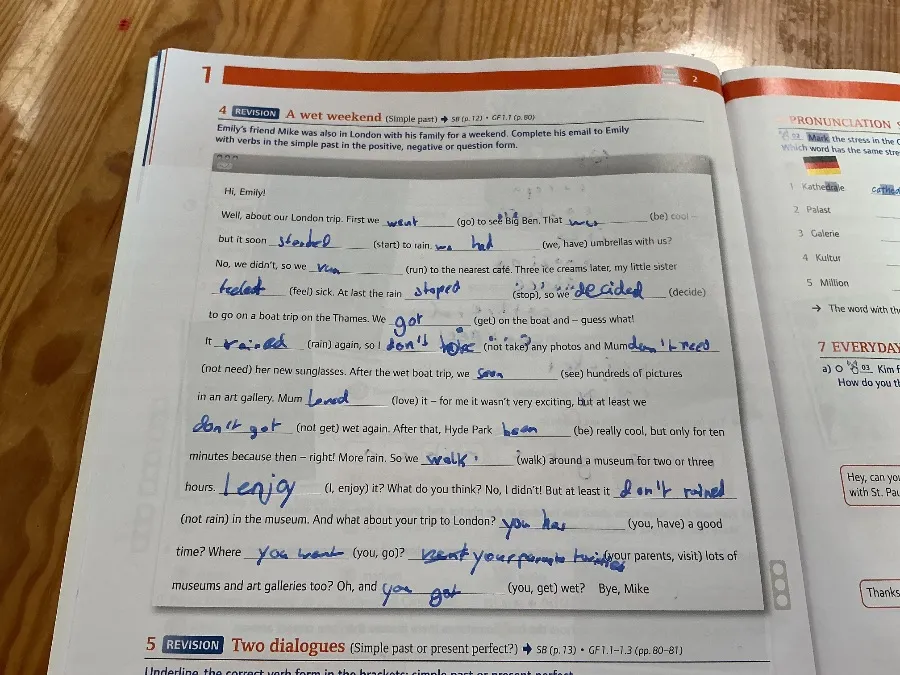 1
2
4 REVISION A wet weekend (Simple past) ➔ SB (p. 12) • GF 1.1 (p. 80)
Emily's friend Mike was also in London with his family for a weekend. Complete his email to Emily
with verbs in the simple past in the positive, negative or question form.
Hi, Emily!
Well, about our London trip. First we went (go) to see Big Ben. That was (be) cool –
but it soon (start) to rain. we had (we, have) umbrellas with us?
No, we didn't, so we run (run) to the nearest café. Three ice creams later, my little sister
(feel) sick. At last the rain stoped (stop), so we decided (decide)
to go on a boat trip on the Thames. We got (get) on the boat and – guess what!
It rained (rain) again, so I don't (not take) any photos and Mum don't need
(not need) her new sunglasses. After the wet boat trip, we (see) hundreds of pictures
in an art gallery. Mum loved (love) it – for me it wasn't very exciting, but at least we
don't got (not get) wet again. After that, Hyde Park been (be) really cool, but only for ten
minutes because then – right! More rain. So we walk (walk) around a museum for two or three
hours. I enjoy (I, enjoy) it? What do you think? No, I didn't! But at least it don't rained
(not rain) in the museum. And what about your trip to London? you has (you, have) a good
time? Where you went (you, go)? your parents (your parents, visit) lots of
museums and art galleries too? Oh, and you got (you, get) wet? Bye, Mike
5 REVISION Two dialogues (Simple past or present perfect?) ➔ SB (p. 13) • GF 1.1–1.3 (pp. 80–81)
Underline the correct verb form in the brackets: simple past or present perfect.
PRONUNCIATION
02 Mark the stress in the
Which word has the same
1 Kathedrale
2 Palast
3 Galerie
4 Kultur
5 Million
→ The word with
7 EVERYDAY
a) 03 Kim
How do you
Hey, can you
with St.
Thanks